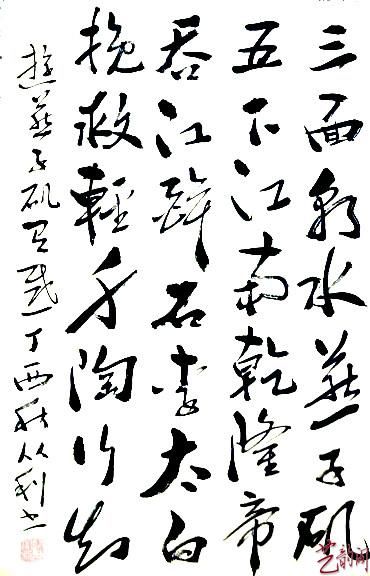 三面水燕子矶
五下江南乾隆帝
吞江醉石李太白
挽救輕生陶行知
遊燕子矶有感丁酉秋从利书
艺韵网